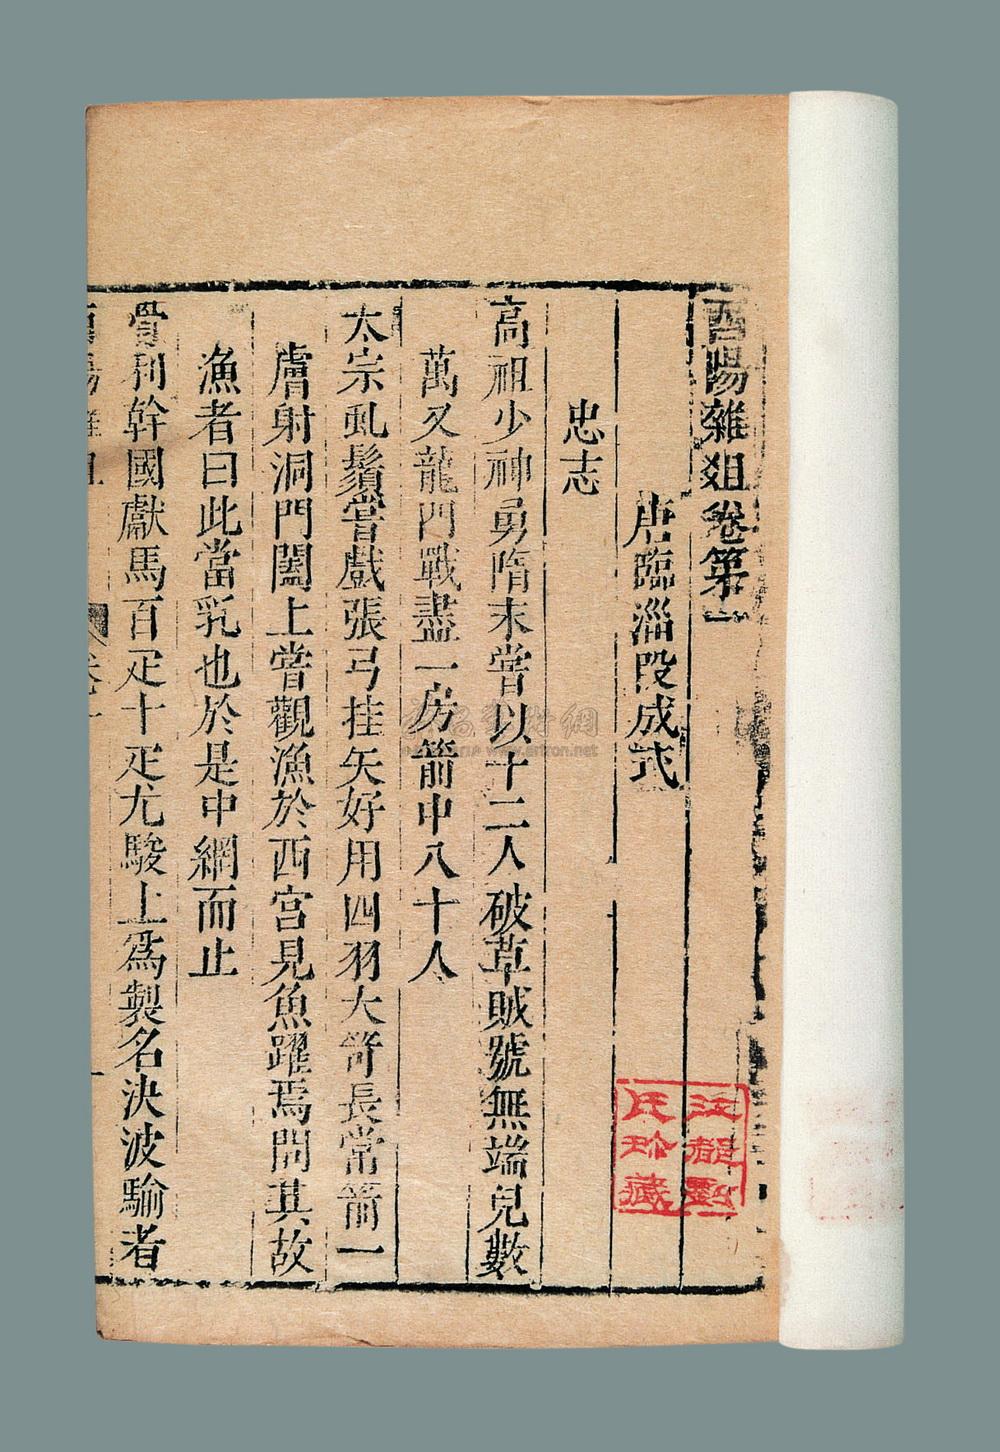 酉陽雜俎卷第一
唐臨淄段成式
忠志
高祖少神勇隋末嘗以十二人破草賊號無端兒數
萬又龍門戰盡一房箭中八十人
太宗虬鬚嘗戲張弓挂矢好用四羽大笴長常箭一
膚射洞門闔上嘗觀漁於西宮見魚躍焉問其故
漁者曰此當乳也於是中網而止
骨利幹國獻馬百疋十疋尤駿上爲製名決波騟者
江都劉
氏珍藏
www.artron.net